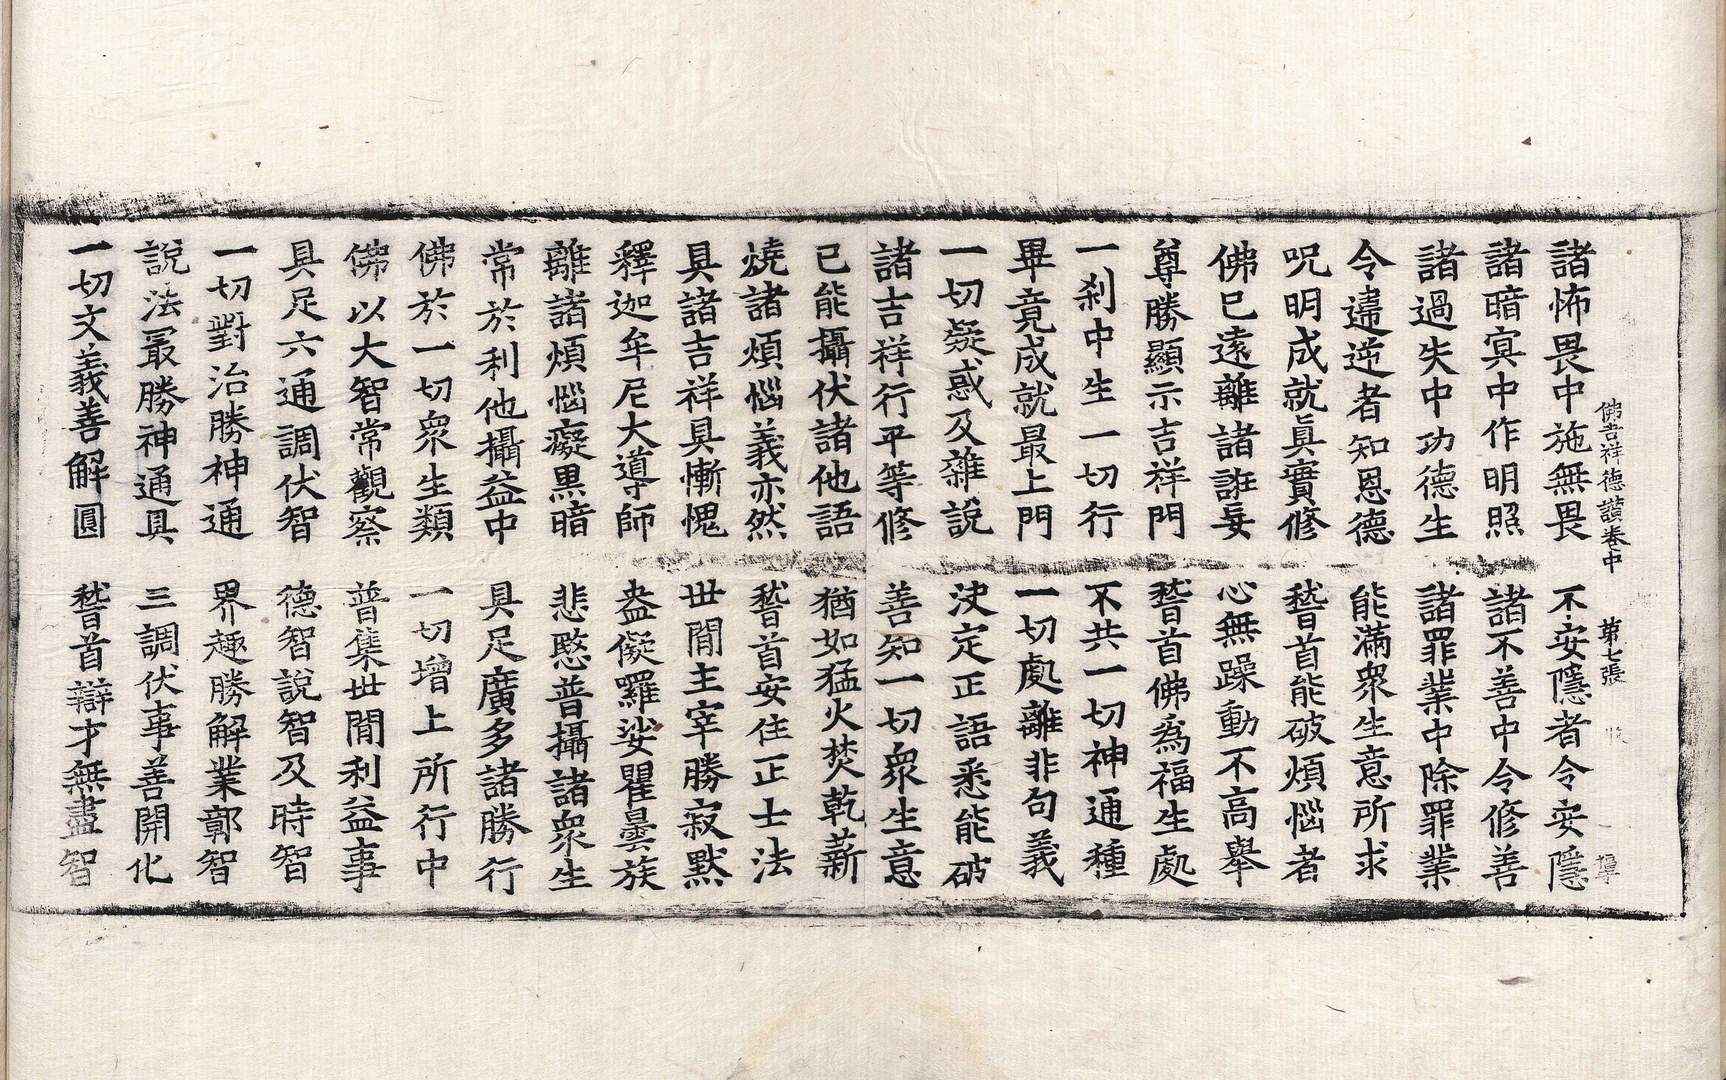 佛吉祥德讃卷中 第七張
諸怖畏中施無畏 不安隱者令安隱
諸暗寘中作明照 諸不善中令修善
諸過失中功德生 諸罪業中除罪業
令違逆者知恩德 能滿衆生意所求
呪明成就眞實修 䭫首能破煩惱者
佛已遠離諸誑妄 心無躁動不高舉
尊勝顯示吉祥門 䭫首佛爲福生處
一刹中生一切行 不共一切神通種
畢竟成就最上門 一切處離非句義
一切疑惑及雜說 決定正語悉能破
諸吉祥行平等修 善知一切衆生意
已能攝伏諸他語 猶如猛火焚乾薪
燒諸煩惱義亦然 䭫首安住正士法
具諸吉祥具慚愧 世閒主宰勝寂默
釋迦牟尼大導師 蠱儗囉娑瞿曇族
離諸煩惱癡黒暗 悲愍普攝諸衆生
常於利他攝益中 具足廣多諸勝行
佛於一切衆生類 一切增上所行中
佛以大智常觀察 普集世閒利益事
具足六通調伏智 德智說智及時智
一切對治勝神通 界趣勝解業鄣智
說法最勝神通具 三調伏事善開化
一切文義善解圓 䭫首辯才無盡智